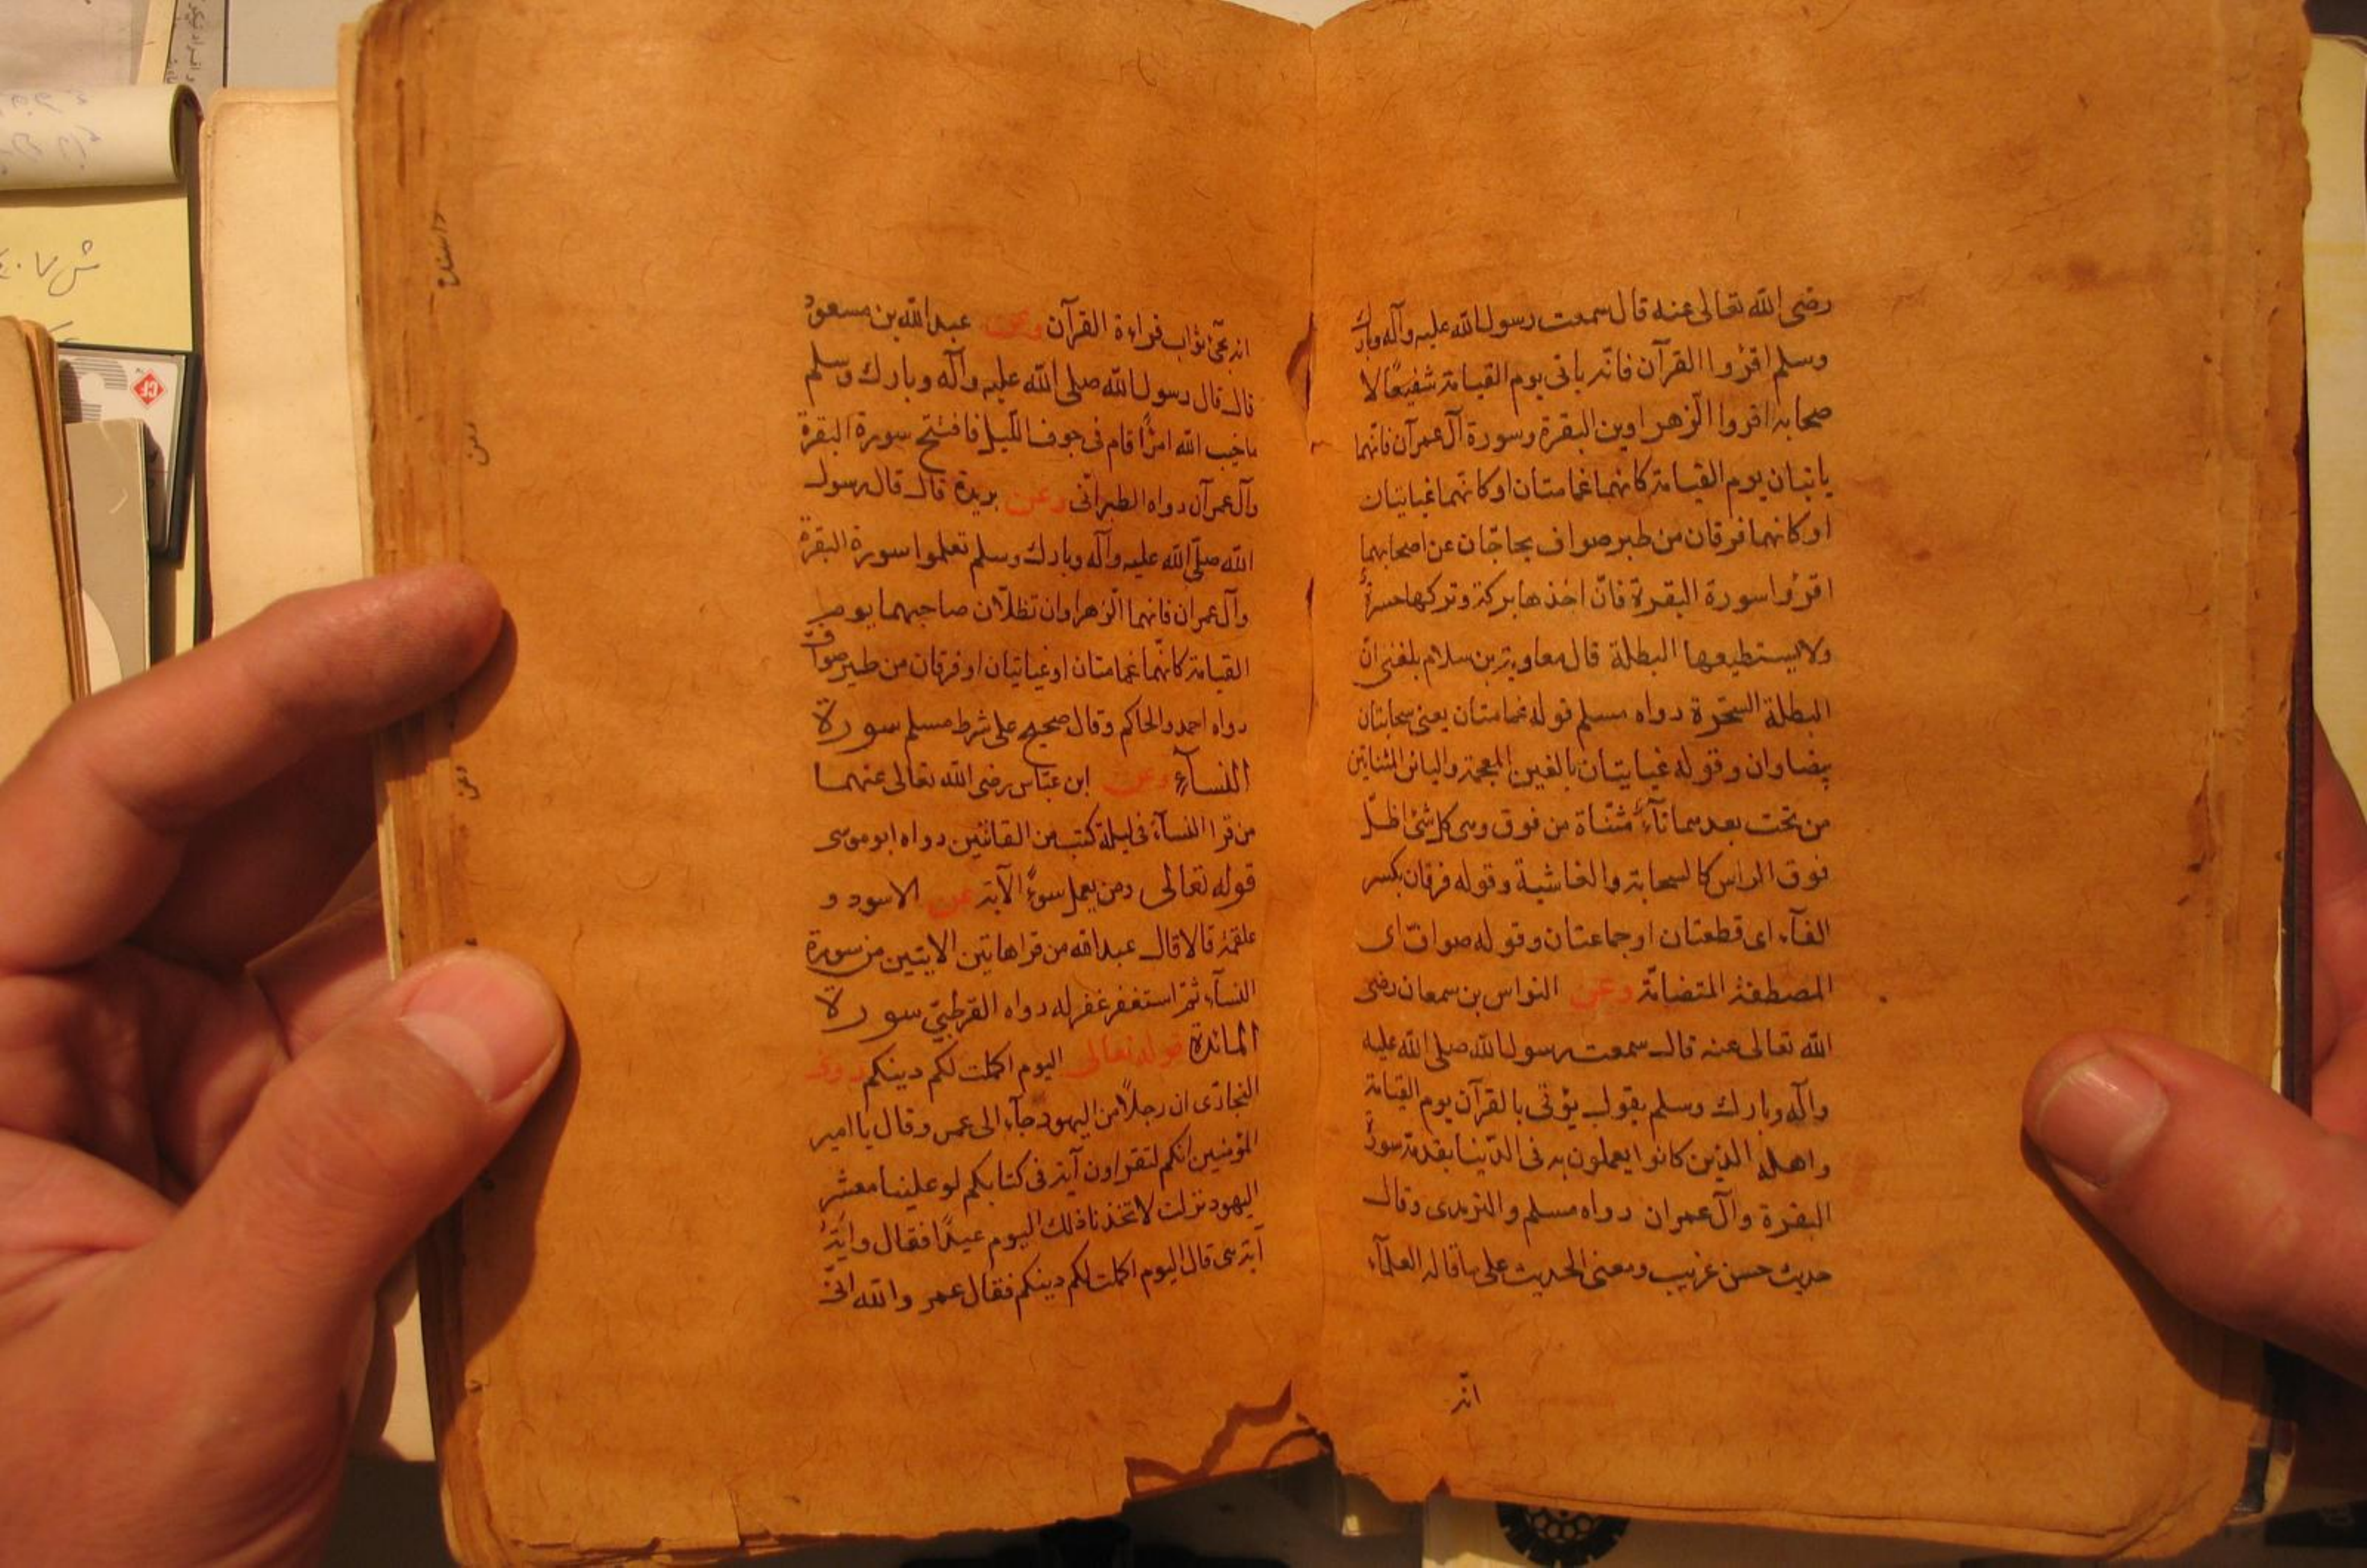 رضى الله تعالى عنه قال سمعت رسول الله عليه وآله وبارك
وسلم اقرؤا القرآن فانه ياتى يوم القيامة شفيعًا لا
صحابه اقروا الزهراوين البقرة وسورة آل عمرآن فانهما
ياتيان يوم القيامة كانهما غمامتان او كانهما غيايتان
او كانهما فرقان من طير صواف يحاجّان عن اصحابهما
اقرؤا سورة البقرة فانّ اخذها بركة وتركها حسرةٌ
ولا يستطيعها البطلة قال معاوية بن سلام بلغنى انّ
البطلة السحرة رواه مسلم قوله غمامتان يعنى سحابتان
بيضاوان وقوله غيايتان بالغين المعجمة واليائين المثناتين
من تحت بعدهما تآءٌ مثنّاة من فوق وهى كل شئ اظلّ
فوق الراس كالسحابة والغاشية وقوله فرقان بكسر
الفآء اى قطعتان او جماعتان وقوله صوافّ اى
المصطفة المتضامّة وعن النواس بن سمعان رضى
الله تعالى عنه قال سمعت رسول الله صلى الله عليه
وآله وبارك وسلم يقول يؤتى بالقرآن يوم القيامة
واهله الذين كانوا يعملون به فى الدّنيا يقدمه سورةٌ
البقرة وآل عمران رواه مسلم والترمدى وقال
حديث حسن غريب ومعنى الحديث على ما قاله العلمآء
انّه
انه يجئ ثواب قراءة القرآن وعن عبد الله بن مسعود
قال قال رسول الله صلى الله عليه وآله وبارك وسلم
ما خيب الله امرًا قام فى جوف الليل فافتتح سورة البقرة
وآل عمرآن رواه الطبرانى وعن بريدة قال قال رسول
الله صلّى الله عليه وآله وبارك وسلم تعلموا سورة البقرة
وآل عمران فانهما الزهراوان تظلّان صاحبهما يوم
القيامة كانّهما غمامتان او غيايتان او فرقان من طير صوآفّ
رواه احمد والحاكم وقال صحيح على شرط مسلم سورة
النسآء وعن ابن عبّاس رضى الله تعالى عنهما
من قرا النسآء فى ليلة كتب من القانتين رواه ابو موسى
قوله تعالى ومن يعمل سوءًا الآية عن الاسود و
علقمة قالا قال عبد الله من قرا هاتين الايتين من سورة
النسآء ثمّ استغفر غفر له رواه القرطبيّ سورة
المائدة قوله تعالى اليوم اكملت لكم دينكم روى
البخارى ان رجلًا من اليهود جآء الى عمر وقال يا امير
المؤمنين انكم لتقراون آية فى كتابكم لو علينا معشر
اليهود نزلت لاتخذنا ذلك اليوم عيدًا فقال وايّةُ
آية هى قال اليوم اكملت لكم دينكم فقال عمر والله انّى
وعن
وعن